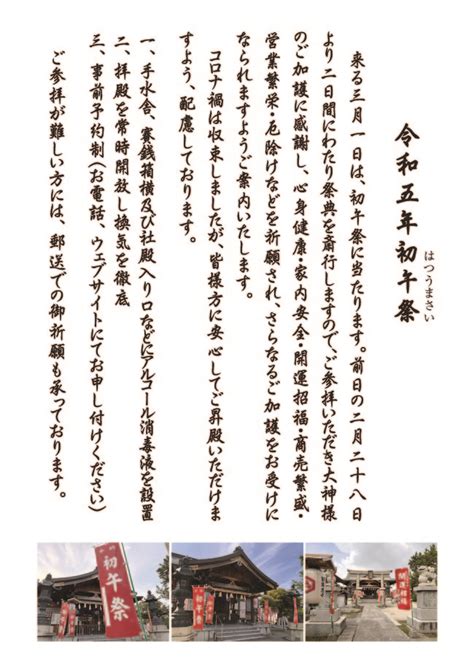 令和五年初午祭
はつうまさい
来る三月一日は、初午祭に当たります。前日の二月二十八日
より二日間にわたり祭典を斎行しますので、ご参拝いただき大神様
のご加護に感謝し、心身健康・家内安全・開運招福・商売繁盛・
営業繁栄・厄除けなどを祈願され、さらなるご加護をお受けに
なられますようご案内いたします。
コロナ禍は収束しましたが、皆様方に安心してご昇殿いただけま
すよう、配慮しております。
一、手水舎、賽銭箱横及び社殿入り口などにアルコール消毒液を設置
二、拝殿を常時開放し換気を徹底
三、事前予約制(お電話、ウェブサイトにてお申し付けください)
ご参拝が難しい方には、郵送での御祈願も承っております。
初午祭
初午祭
開運招福